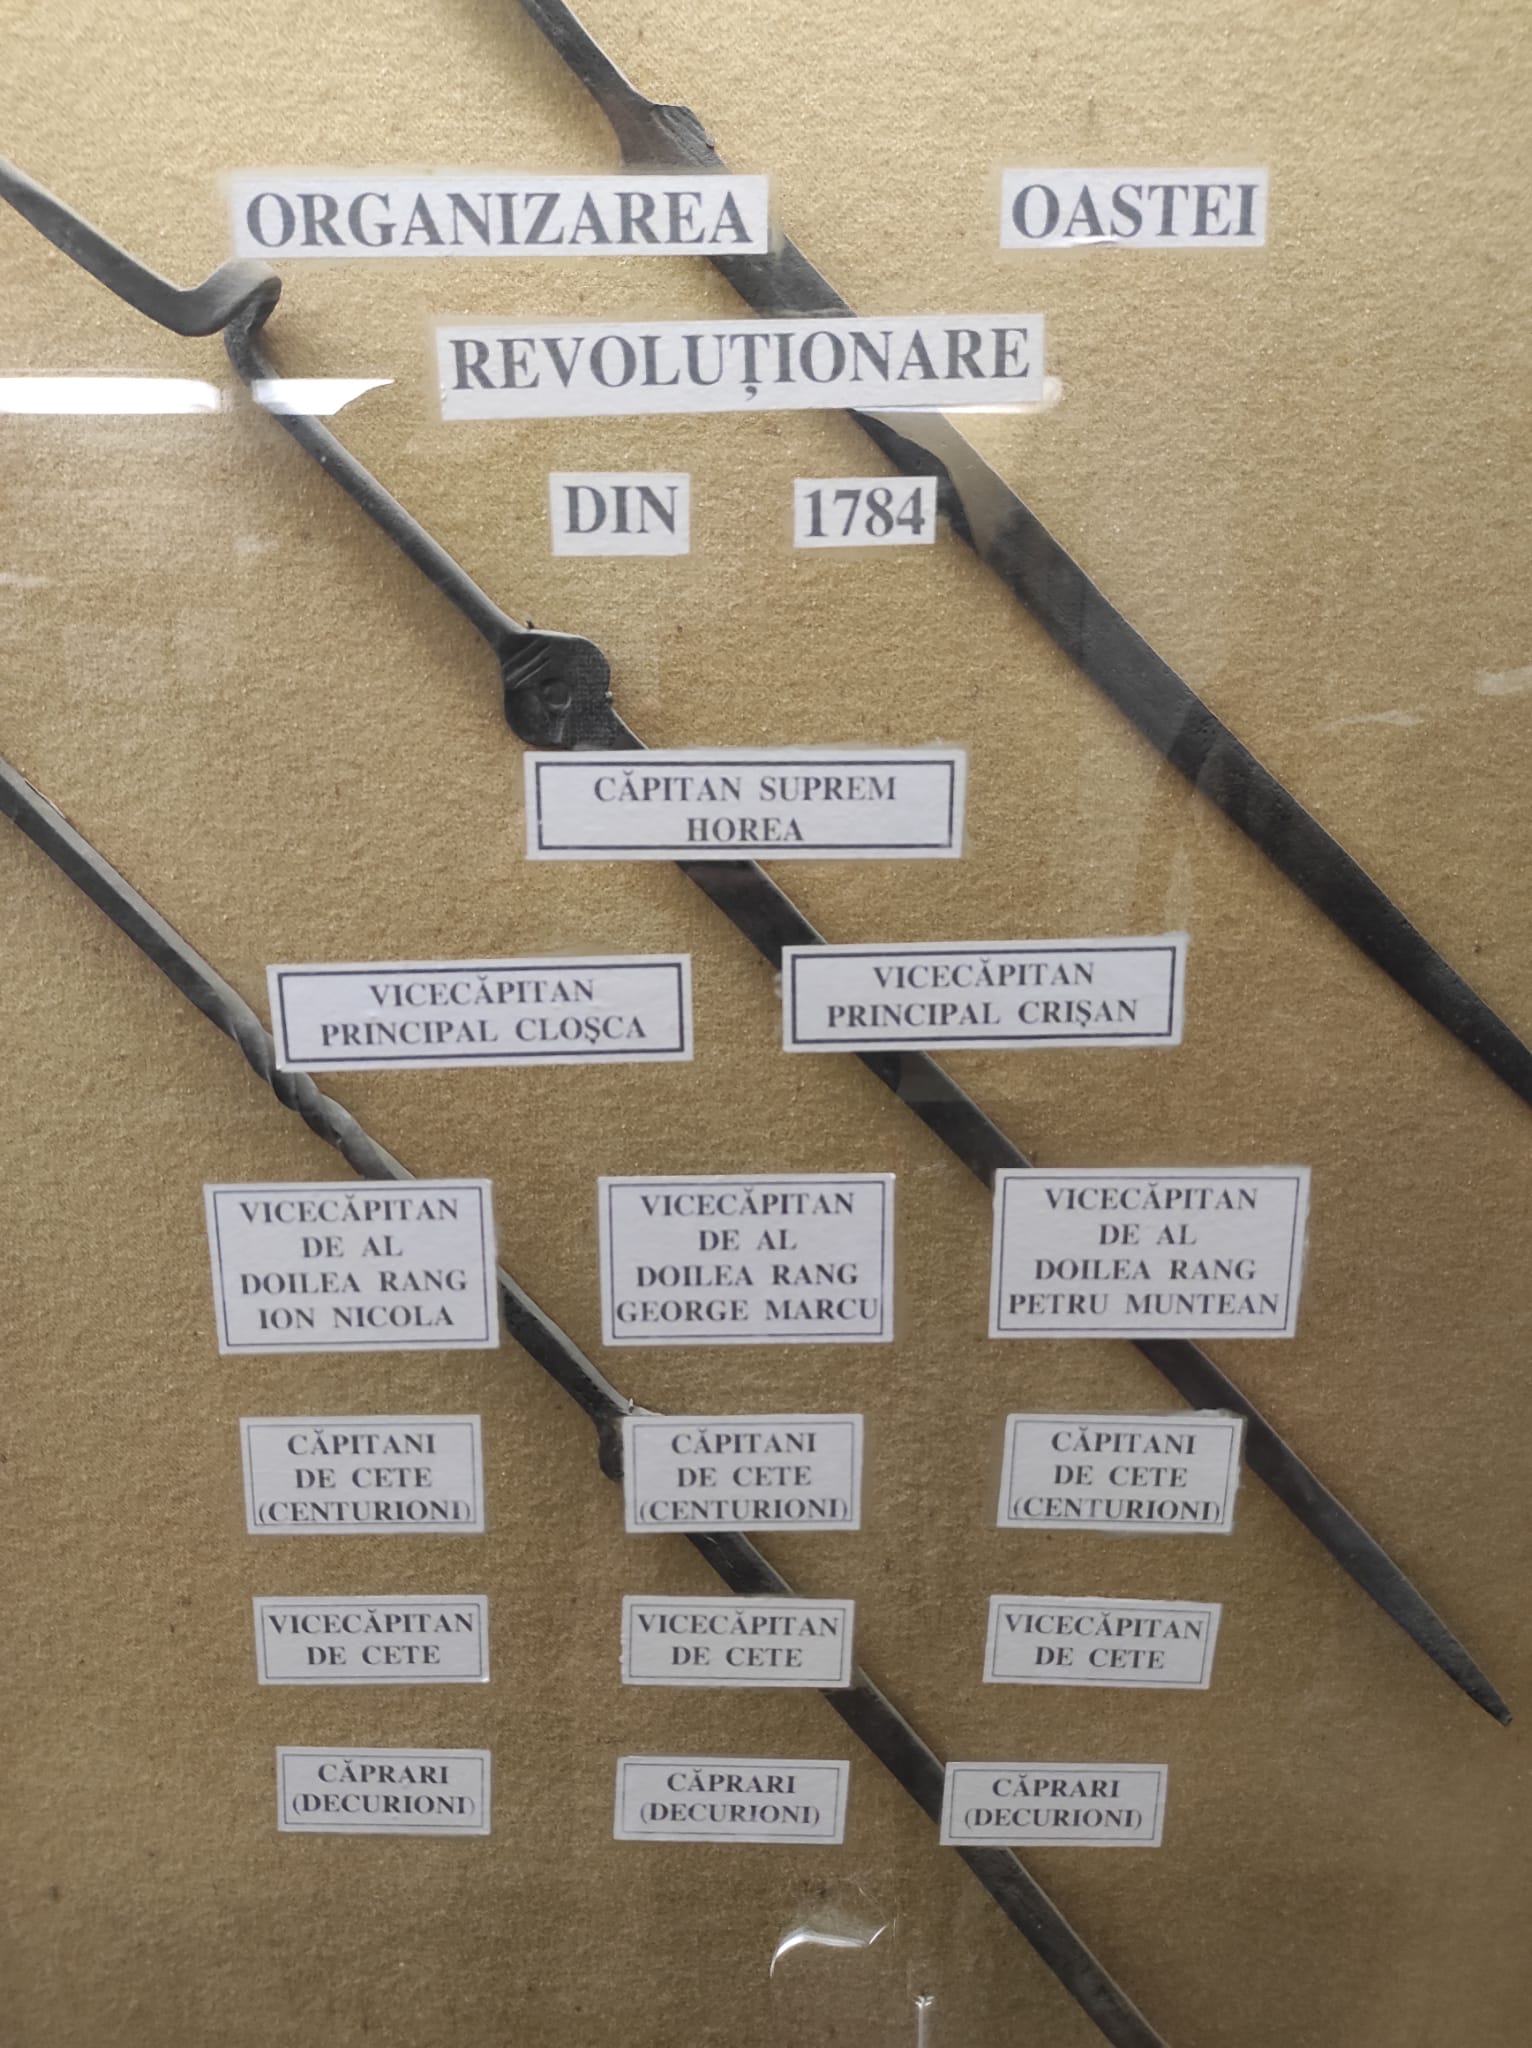 ORGANIZAREA OASTEI
REVOLUȚIONARE
DIN 1784
CĂPITAN SUPREM
HOREA
VICECĂPITAN
PRINCIPAL CLOȘCA
VICECĂPITAN
PRINCIPAL CRIȘAN
VICECĂPITAN
DE AL
DOILEA RANG
ION NICOLA
VICECĂPITAN
DE AL
DOILEA RANG
GEORGE MARCU
VICECĂPITAN
DE AL
DOILEA RANG
PETRU MUNTEAN
CĂPITANI
DE CETE
(CENTURIONI)
CĂPITANI
DE CETE
(CENTURIONI)
CĂPITANI
DE CETE
(CENTURIONI)
VICECĂPITAN
DE CETE
VICECĂPITAN
DE CETE
VICECĂPITAN
DE CETE
CĂPRARI
(DECURIONI)
CĂPRARI
(DECURIONI)
CĂPRARI
(DECURIONI)